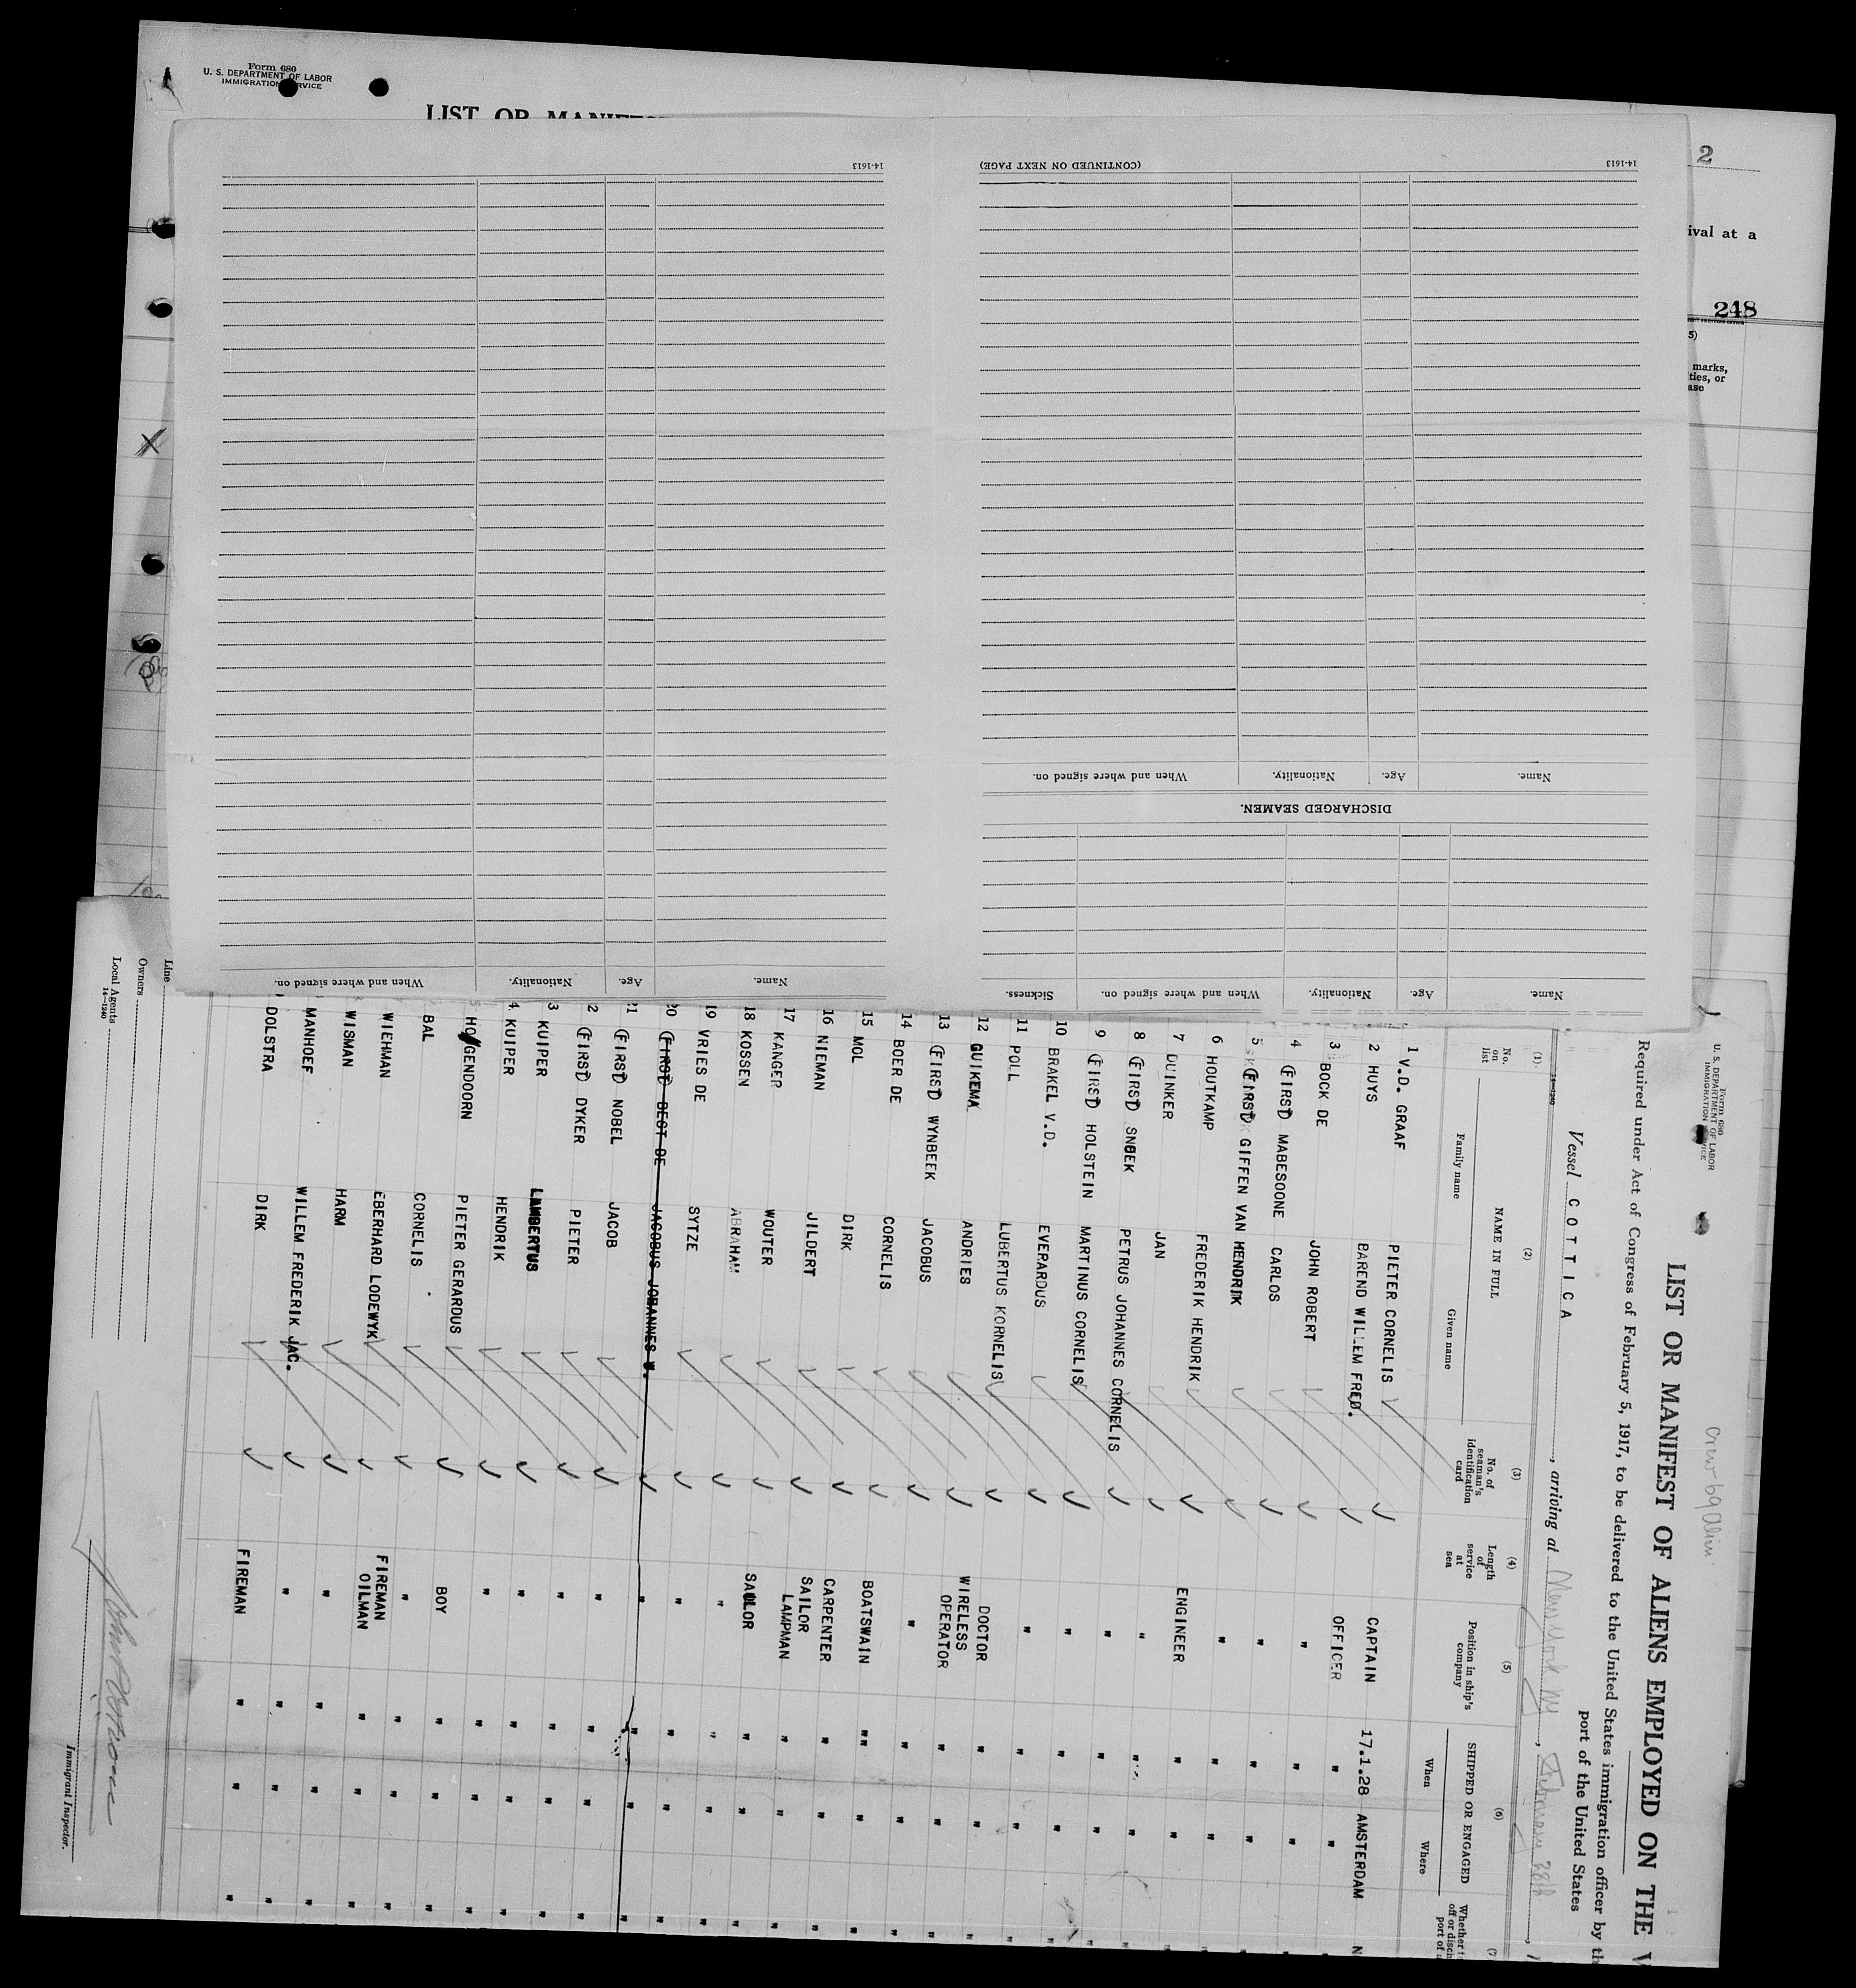 Form 680
U. S. DEPARTMENT OF LABOR
IMMIGRATION SERVICE
LIST OR
2
ival at a
248
5)
marks,
ties, or
ase
14-1613
(CONTINUED ON NEXT PAGE)
14-1613
When and where signed on.
Nationality.
Age.
Name.
DISCHARGED SEAMEN.
Name.
Age.
Nationality.
When and where signed on.
Sickness.
Name.
Age.
Nationality.
When and where signed on.
Form 680
U. S. DEPARTMENT OF LABOR
IMMIGRATION SERVICE
LIST OR MANIFEST OF ALIENS EMPLOYED ON THE V
Required under Act of Congress of February 5, 1917, to be delivered to the United States immigration officer by th
port of the United States
Vessel COTTICA, arriving at New York NY, February 28th, 1
14-1240
(1) No. on list
(2) NAME IN FULL
Family name
Given name
(3) No. of seaman's identification card
(4) Length of service at sea
(5) Position in ship's company
(6) SHIPPED OR ENGAGED
When
Where
(7
Whether t
off or disch
port of a
1 V.D. GRAAF PIETER CORNELIS CAPTAIN 17.1.28 AMSTERDAM N
2 HUYS BAREND WILLEM FRED. OFFICER " "
3 BOCK DE JOHN ROBERT " " "
4 (FIRST) MABESOONE CARLOS " " "
5 (FIRST) GIFFEN VAN HENDRIK " " "
6 HOUTKAMP FREDERIK HENDRIK ENGINEER " "
7 DUINKER JAN " " "
8 (FIRST) SNOEK PETRUS JOHANNES CORNELIS " " "
9 (FIRST) HOLSTEIN MARTINUS CORNELIS " " "
10 BRAKEL V.D. EVERARDUS " " "
11 POLL LUBERTUS KORNELIS DOCTOR " "
12 GUIKEMA ANDRIES WIRELESS OPERATOR " "
13 (FIRST) WYNBEEK JACOBUS " " "
14 BOER DE CORNELIS BOATSWAIN " "
15 MOL DIRK CARPENTER " "
16 NIEMAN JILDERT SAILOR LAMPMAN " "
17 KANGER WOUTER SAILOR " "
18 KOSSEN ABRAHAM " " "
19 VRIES DE SYTZE " " "
20 (FIRST) BEST DE JACOBUS JOHANNES W. " " "
21 (FIRST) NOBEL JACOB " " "
2 (FIRST) DYKER PIETER " " "
3 KUIPER LAMBERTUS " " "
4 KUIPER HENDRIK " " "
5 HOOGENDOORN PIETER GERARDUS BOY " "
BAL CORNELIS " " "
WIEHMAN EBERHARD LODEWYK FIREMAN OILMAN " "
WISMAN HARM " " "
MANHOEF WILLEM FREDERIK JAC. " " "
DOLSTRA DIRK FIREMAN " "
Line
Owners
Local Agents
14-1240
Immigrant Inspector.